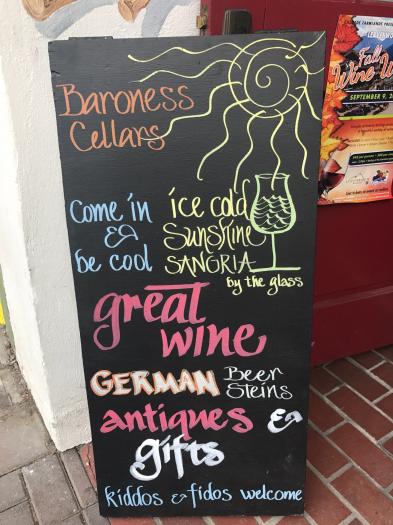 Baroness
Cellars
Come in
&
be cool
ice cold
Sunshine
SANGRIA
by the glass
great
wine
GERMAN Beer
Steins
antiques &
gifts
kiddos & fidos welcome
Fall
Wine W
SEPTEMBER 9, 20